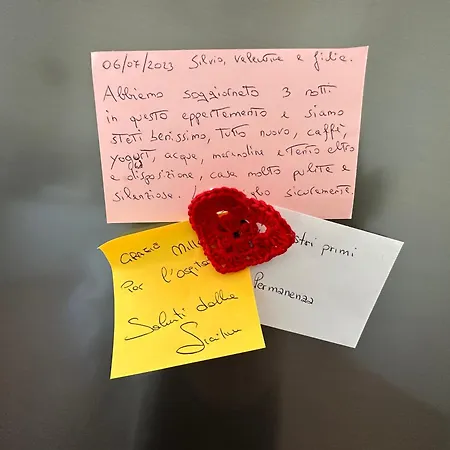 06/07/2023 Silvia, Valentina e Giulia.
Abbiamo soggiornato 3 notti
in questo appartamento e siamo
stati benissimo, tutto nuovo, caffè,
yogurt, acqua, merendine e tanto altro
a disposizione, casa molto pulita e
silenziosa. sicuramente.
GRAZIE Mille
Per l'ospita
Saluti dalla
Sicilia
stri primi
Permanenza